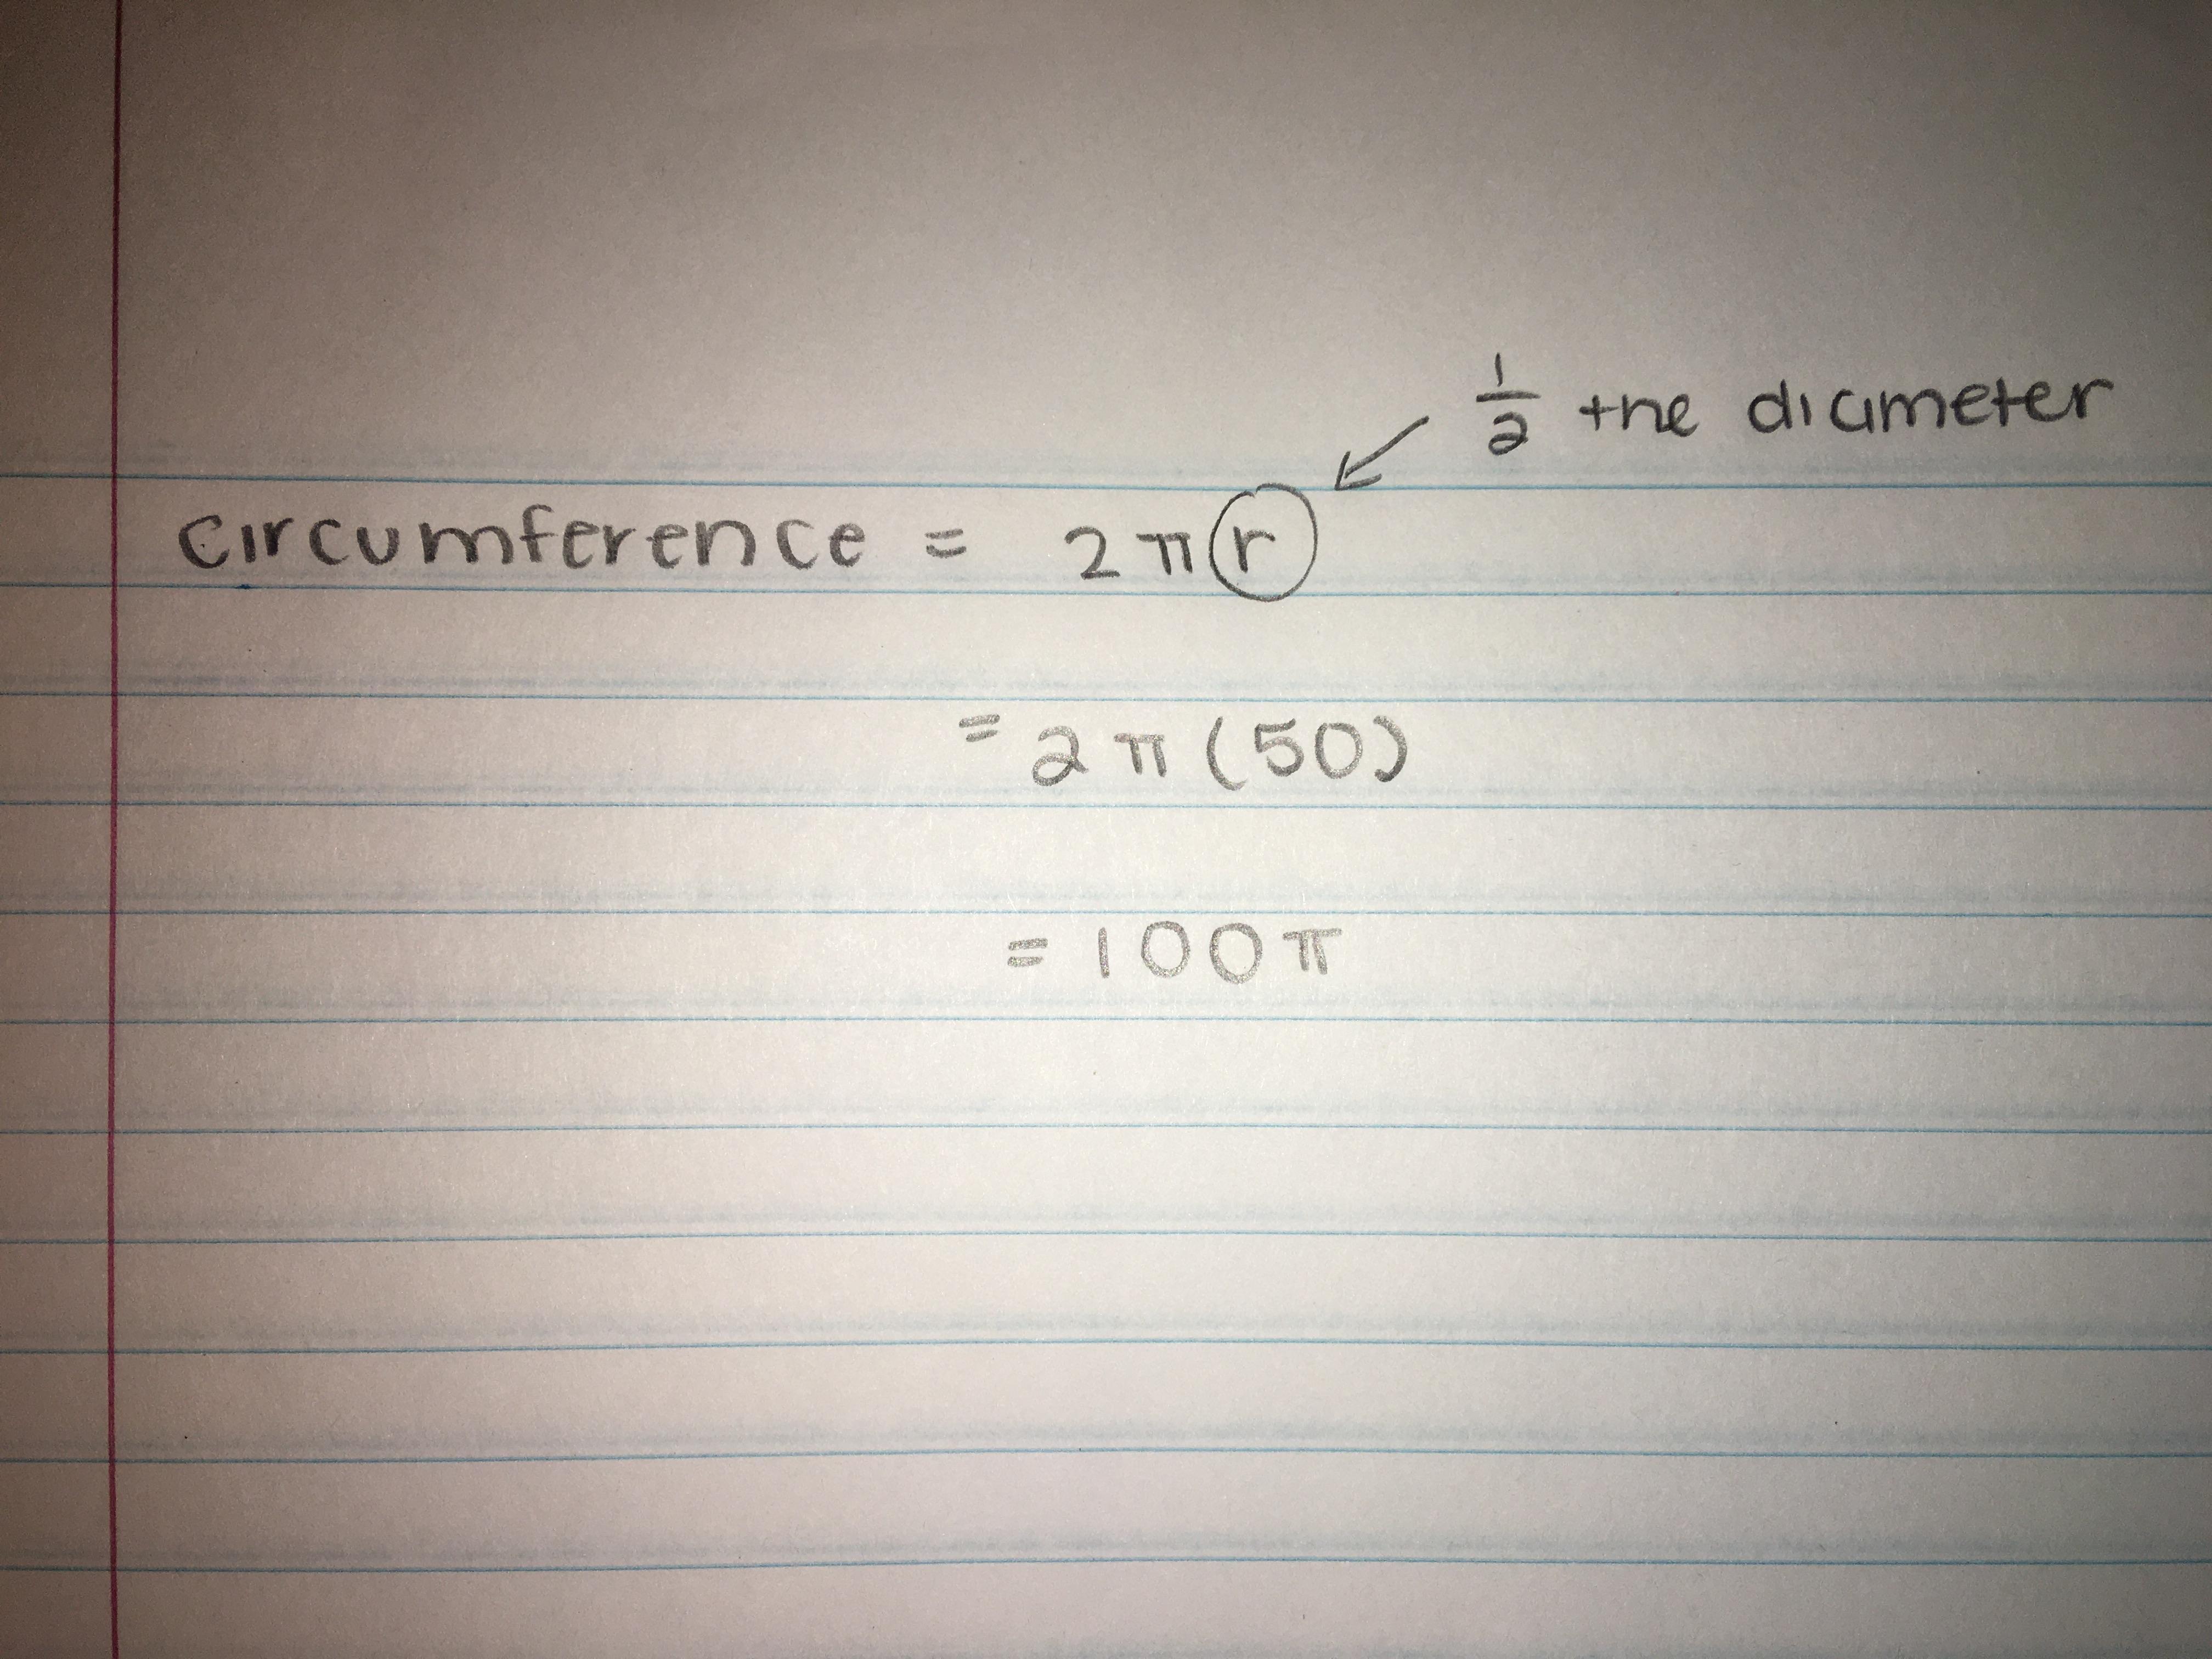 1/2 the diameter
circumference = 2πr
= 2π(50)
= 100π